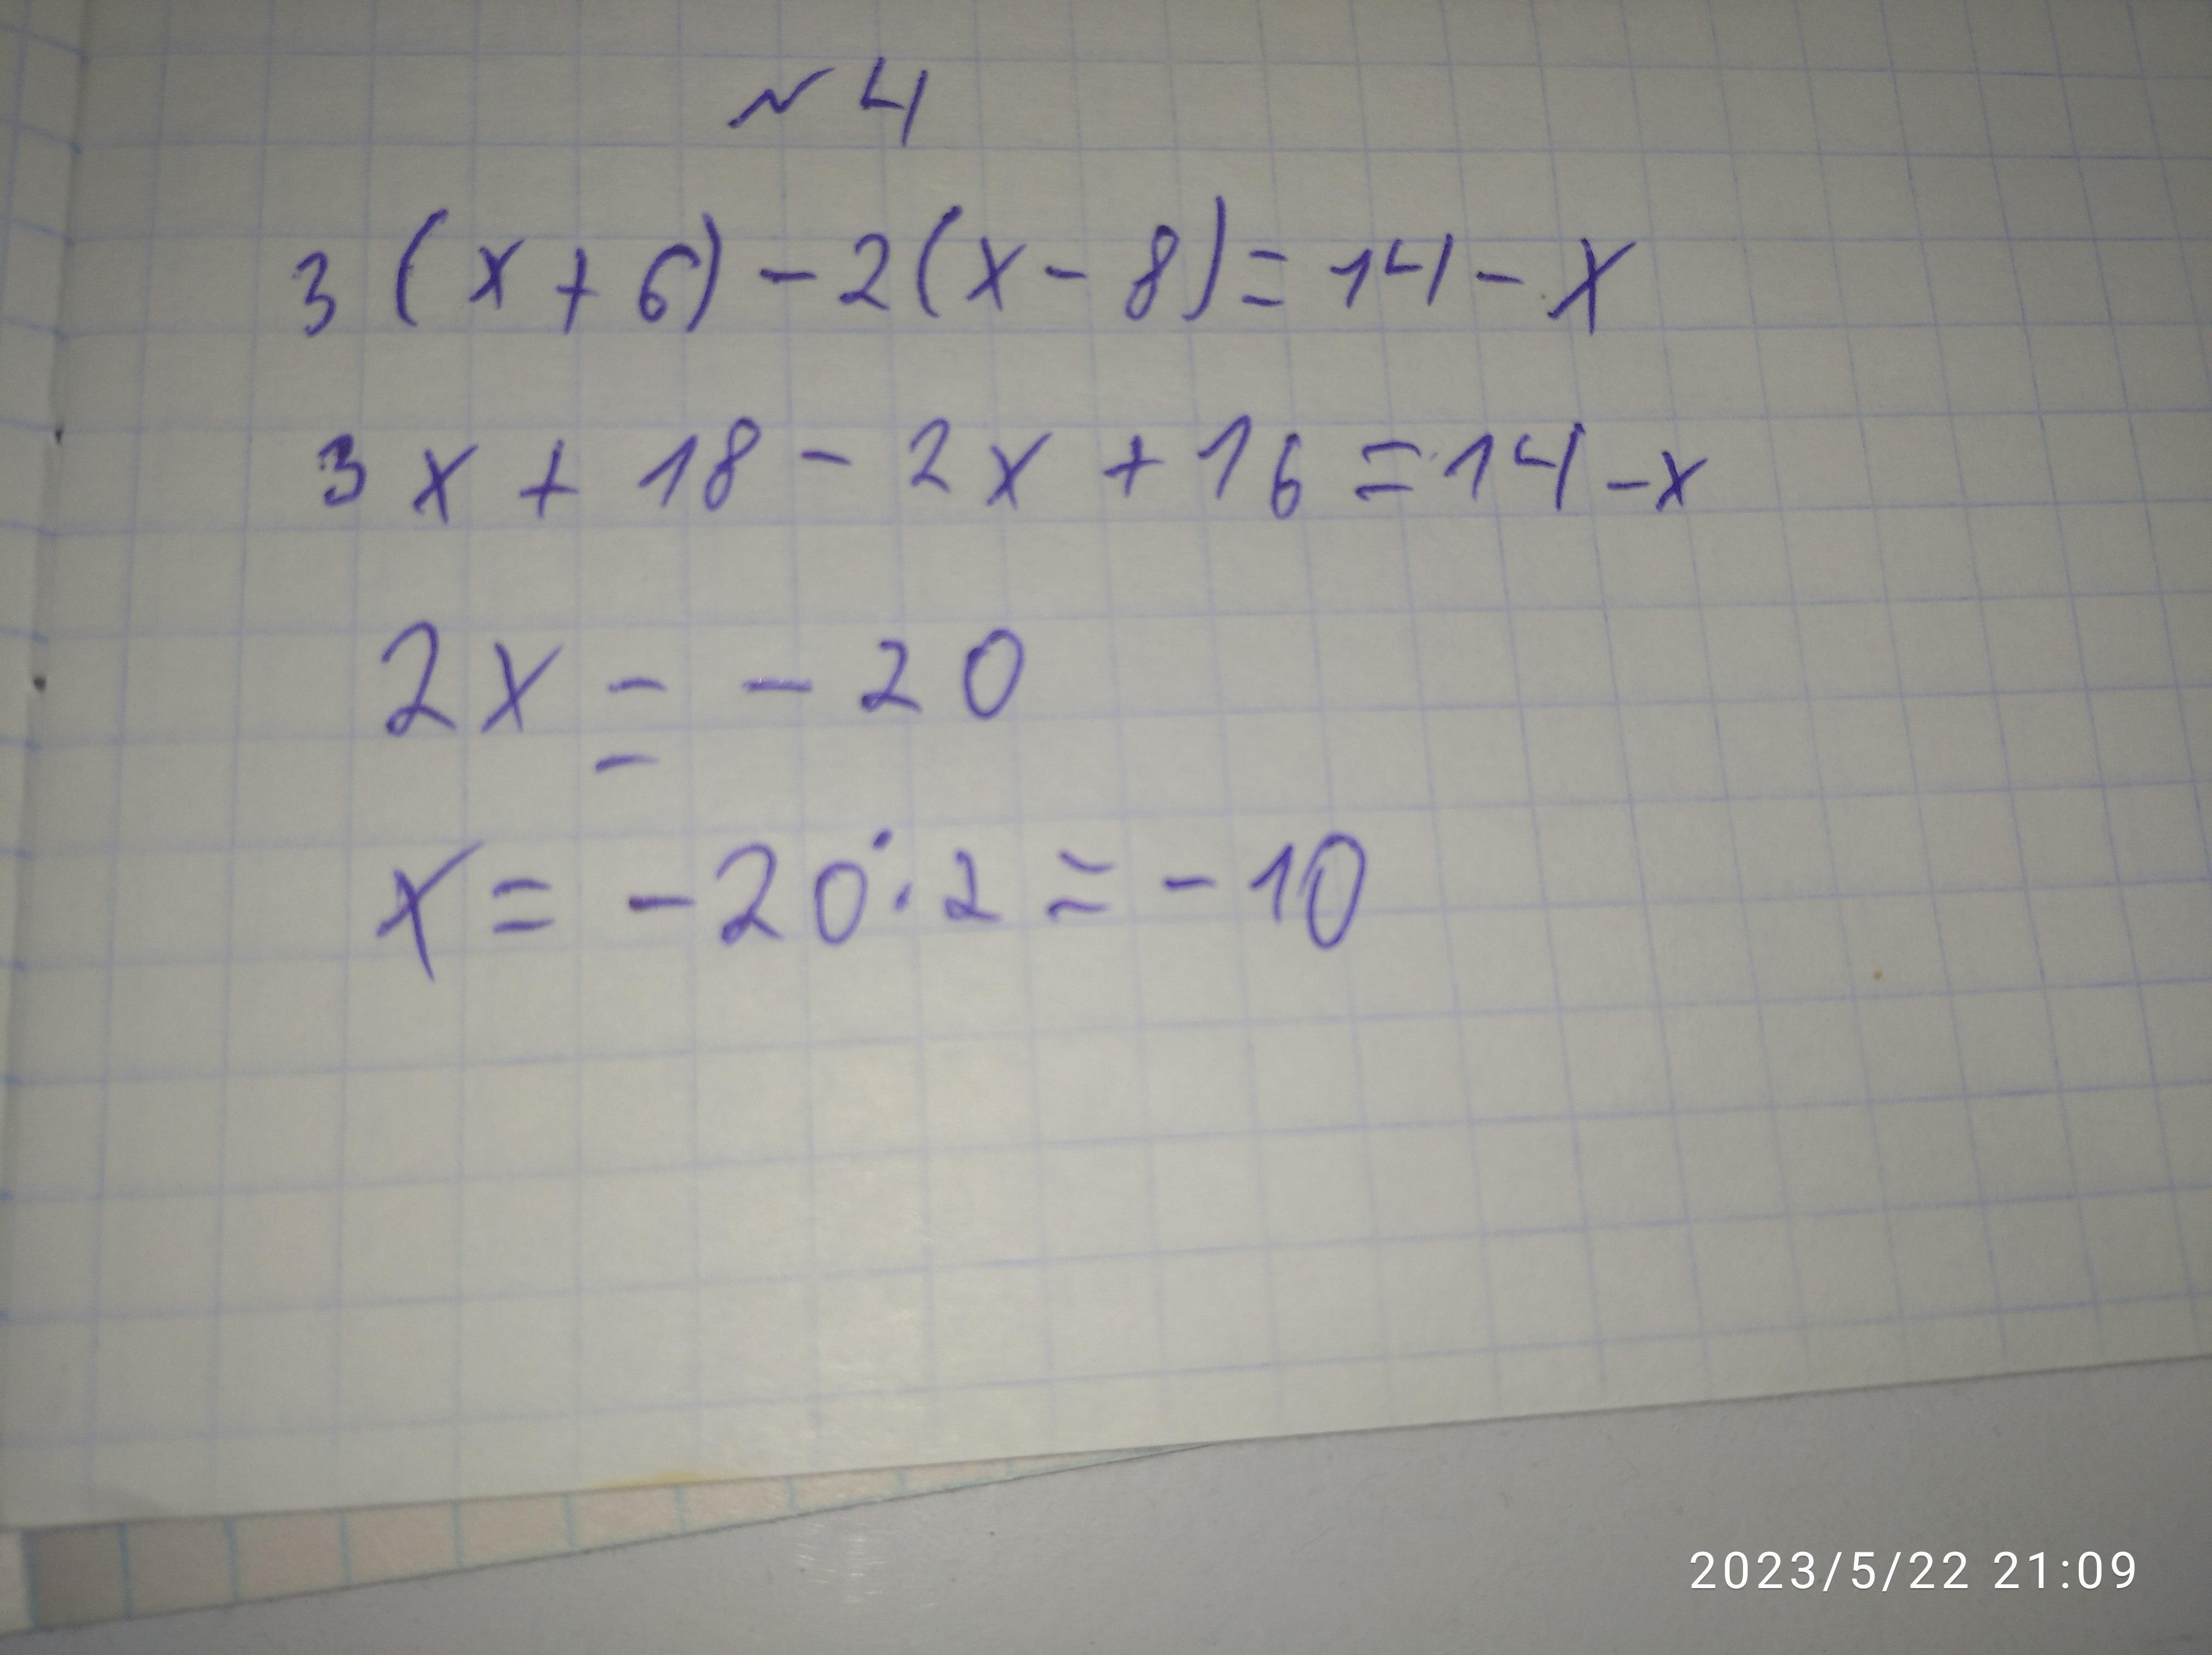 № 4
3(x+6)-2(x-8)=14-x
3x+18-2x+16=14-x
2x=-20
x=-20:2=-10
2023/5/22 21:09